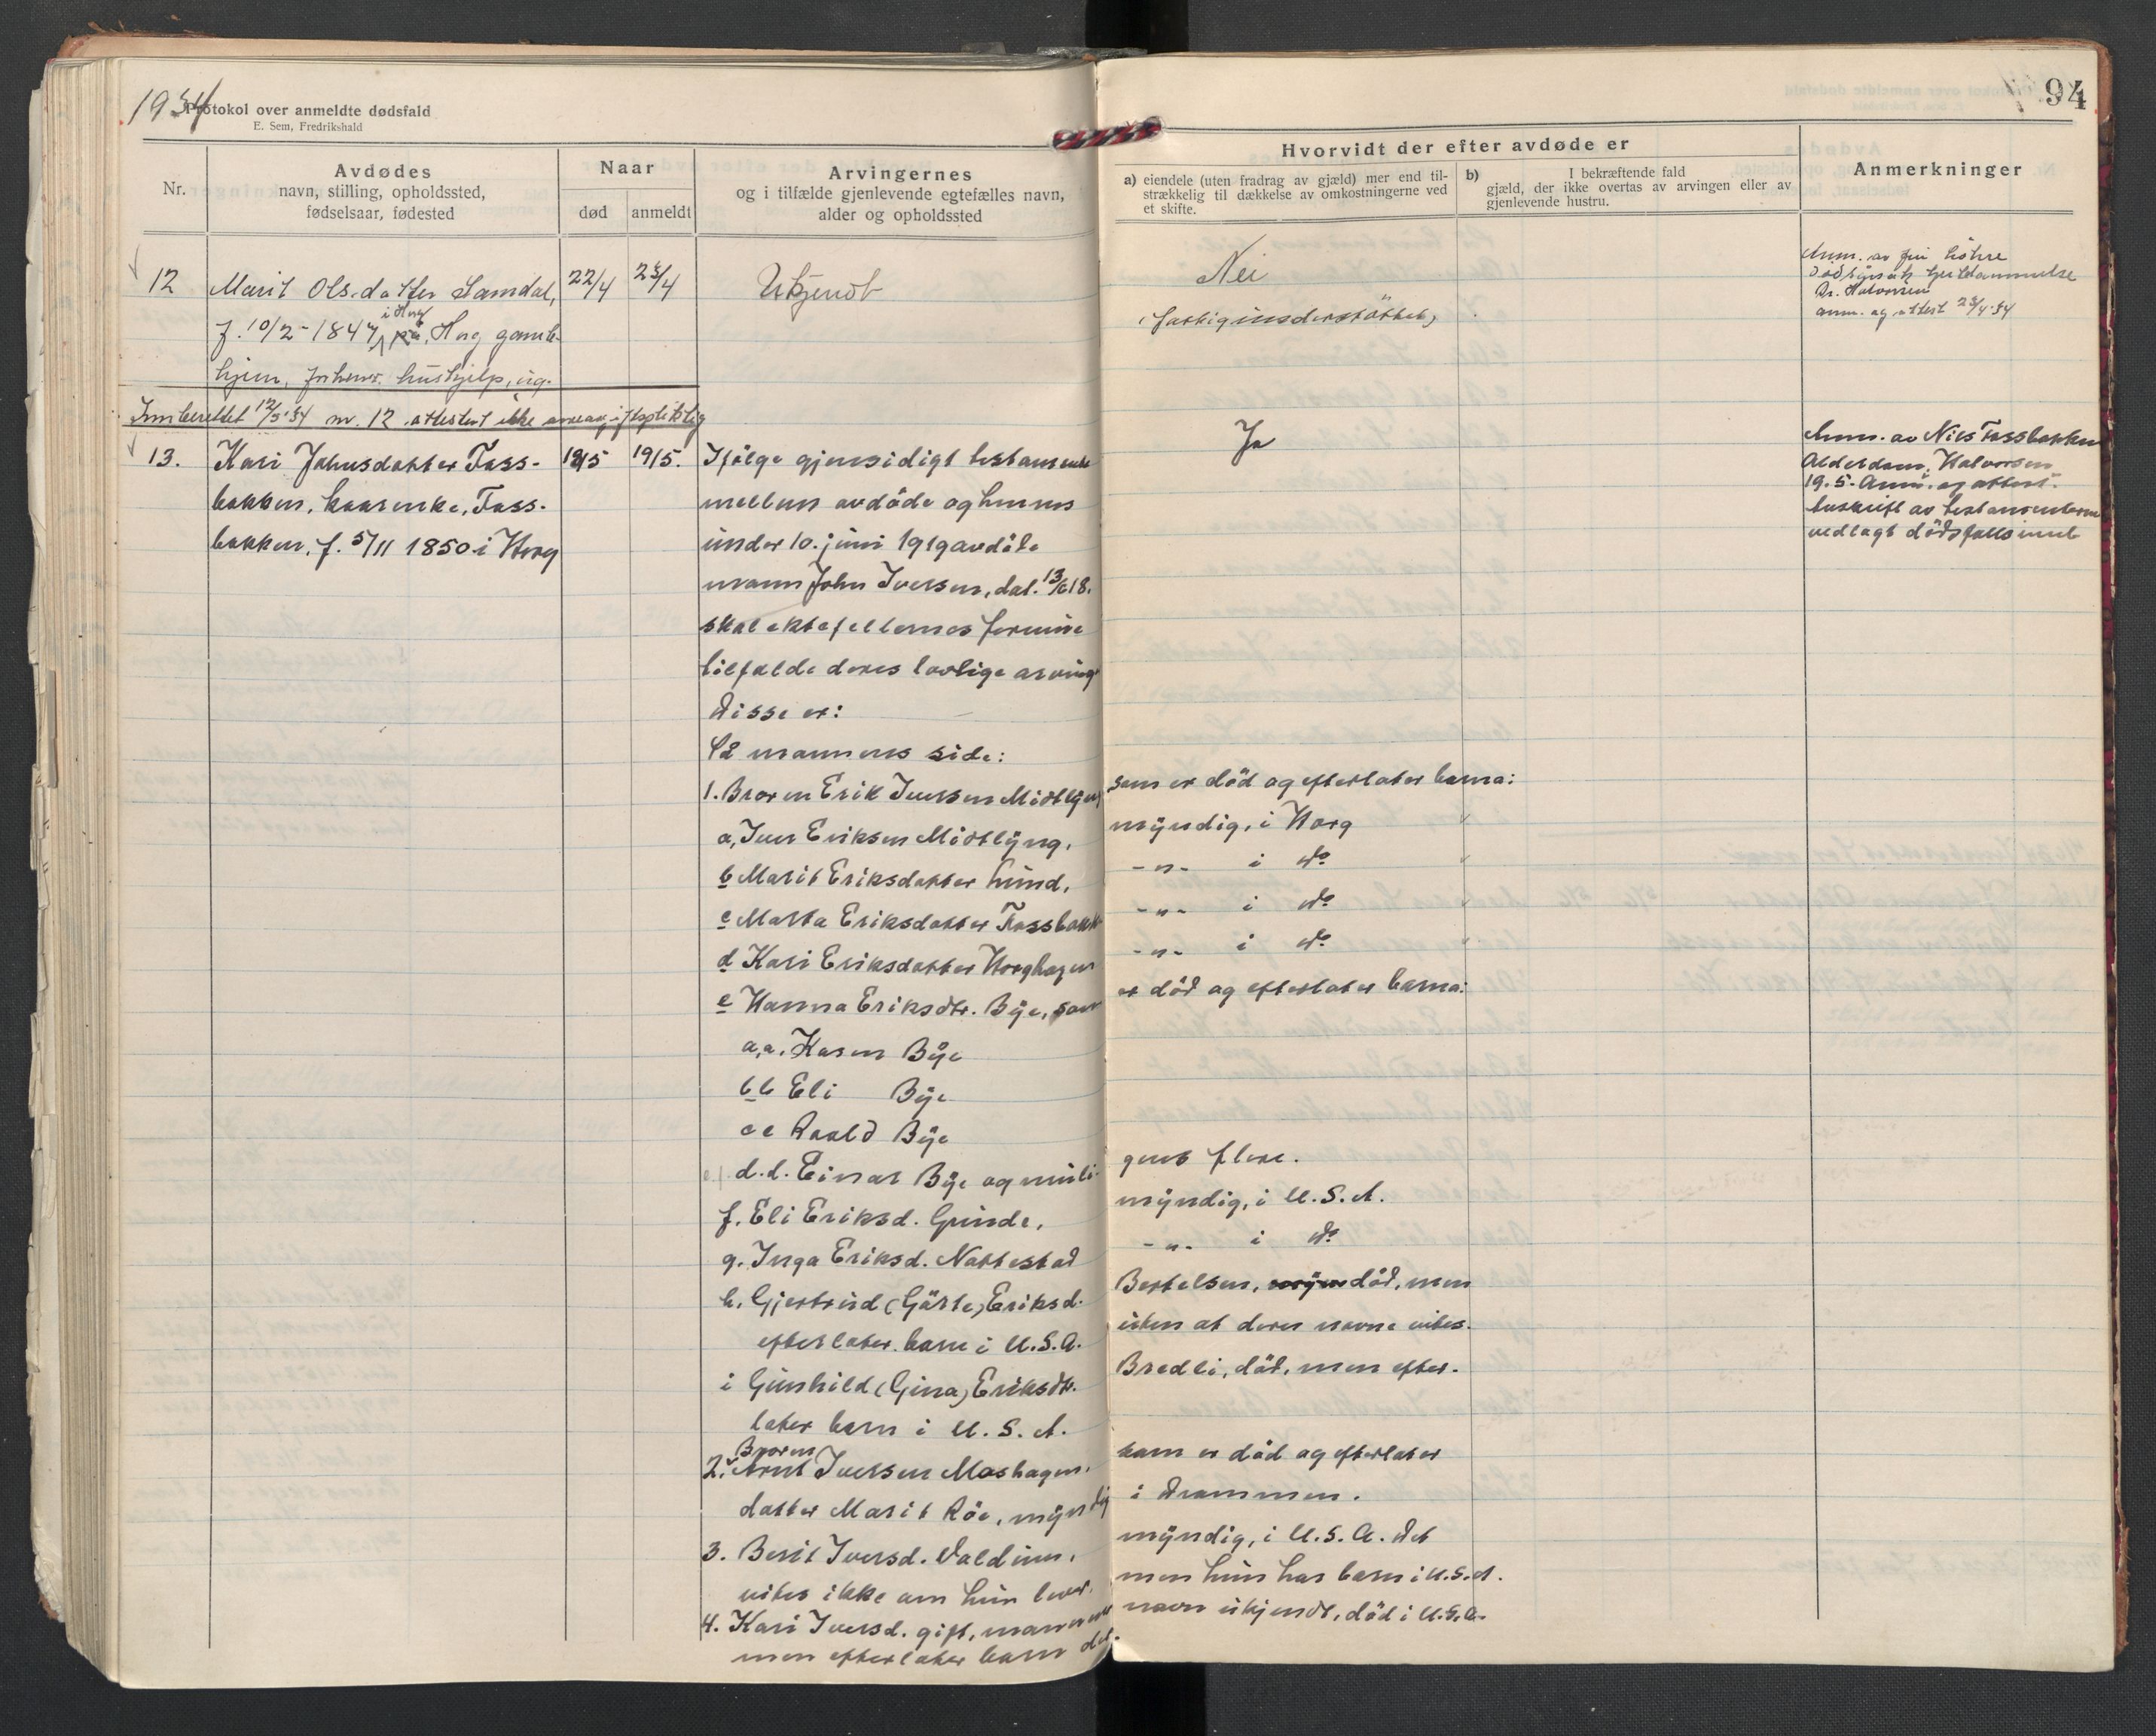 1934
Protokol over anmeldte dødsfald
E. Sem, Fredrikshald
Nr.
Avdødes
navn, stilling, opholdssted,
fødselsaar, fødested
Naar
død
anmeldt
Arvingernes
og i tilfælde gjenlevende egtefælles navn,
alder og opholdssted
94
Hvorvidt der efter avdøde er
a) eiendele (uten fradrag av gjæld) mer end til-
strækkelig til dækkelse av omkostningerne ved
et skifte.
b) I bekræftende fald
gjæld, der ikke overtas av arvingen eller av
gjenlevende hustru.
Anmerkninger
12 Marit Olsdatter Samdal, 22/4 23/4 Ukjendt
i Horg
f. 10/2-1847, på Horg gamle-
hjem, hushjelp, ug.
Nei
(fattigunderstöttet)
Dr. Halvorsen
anm. og attest 23/4-34
Innberettet 12/5-34 nr. 12 attestert ikke arveavgiftspliktig
13. Kari Johnsdatter Foss- 18/5 19/5. Ifölge gjensidigt testamente
bakken, kaarenke, Foss- mellem avdöde og hennes
bakken, f. 5/11 1850 i Horg under 10. juni 1919 avdöde
mann John Iversen, dat. 13/6 18.
skal ektefellernes formue
tilfalde deres lovlige arving
Disse er:
På mannens side:
1. Broren Erik Iversen Midtlyng
a, Iver Eriksen Midtlyng,
b Marit Eriksdatter Lund,
c Marta Eriksdatter Fossbakk
d Kari Eriksdatter Horghagen
e Hanna Eriksdtr. Bye, som
a.a. Karen Bye
bb Eli Bye
cc Roald Bye
d.d. Einar Bye og muli-
f. Eli Eriksd. Grinde,
g. Inga Eriksd. Nattestad
h. Gjertrud (Gärte) Eriksd.
efterlater barn i U.S.A.
i Gunhild (Gina) Eriksdtr.
later barn i U.S.A.
Broren
2. Arnt Iversen Moshagen,
datter Marit Röe, myndig
3. Berit Iversd. Valdum,
vites ikke om hun lever,
4. Kari Iversd. gift, mannens
men efterlater barn der.
Ja
Anm. av Nils Fossbakken
Alderdom, Halvorsen
19.5. Anm. og attest.
avskrift av testamentene
vedlagt dödsfallsinnb
som er död og efterlater barna:
myndig, i Horg
-"- i do
-"- i do
-"- i do
er död og efterlater barna:
gens flere.
myndig, i U.S.A.
-"- i do
Bertelsen, död, men
uten at deres navne vites.
Bredli, död, men efter-
som er död og efterlater
i Drammen.
myndig, i U.S.A. Det
men hun har barn i U.S.A.
navn ukjendt, död i U.S.A.